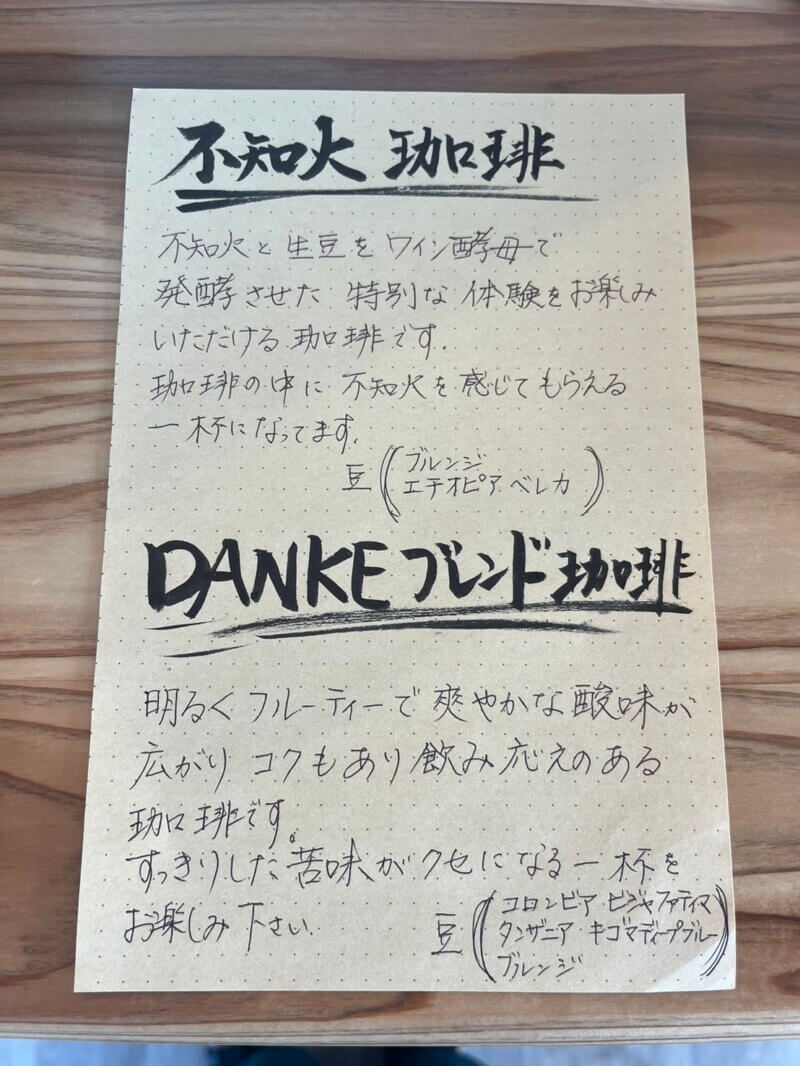 不知火 珈琲
不知火と生豆をワイン酵母で
発酵させた 特別な 体験をお楽しみ
いただける 珈琲です.
珈琲の中に 不知火を感じてもらえる
一杯になってます.
豆(ブルンジ
エチオピア ベレカ)
DANKE ブレンド 珈琲
明るく フルーティーで 爽やかな 酸味が
広がり コクもあり 飲み応えのある
珈琲です。
すっきりした 苦味がクセになる一杯を
お楽しみ下さい.
豆(コロンビア ビジャファティマ
タンザニア・キゴマディープブルー
ブルンジ)